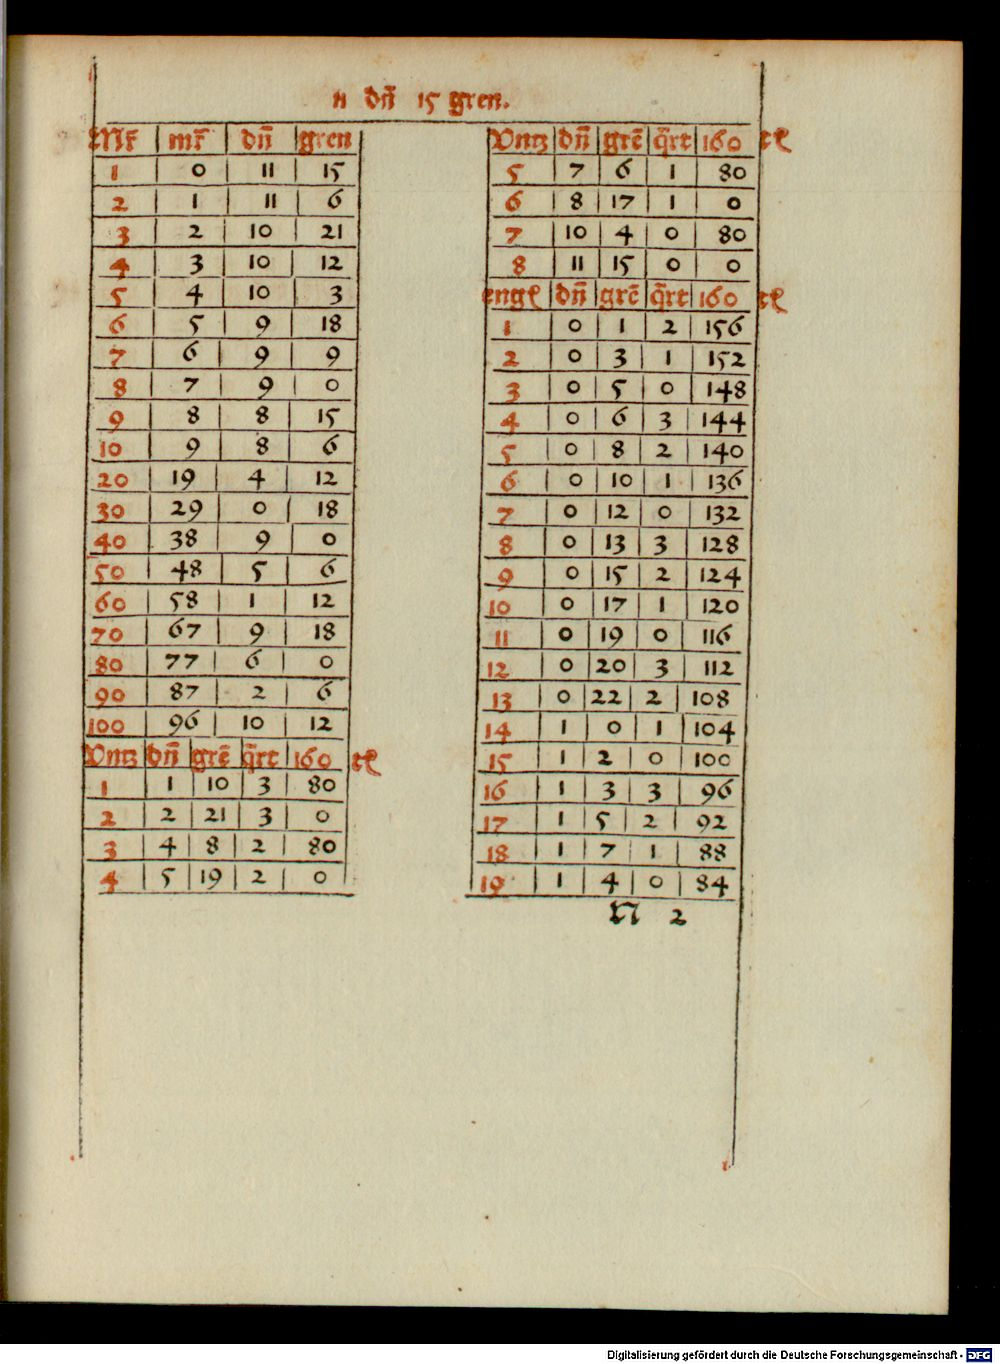 11 dn̄ 15 gren.
Mr̄ mr̄ dn̄ gren
1 0 11 15
2 1 11 6
3 2 10 21
4 3 10 12
5 4 10 3
6 5 9 18
7 6 9 9
8 7 9 0
9 8 8 15
10 9 8 6
20 19 4 12
30 29 0 18
40 38 9 0
50 48 5 6
60 58 1 12
70 67 9 18
80 77 6 0
90 87 2 6
100 96 10 12
Vntz dn̄ grē q̄rt 160 tꝭ
1 1 10 3 80
2 2 21 3 0
3 4 8 2 80
4 5 19 2 0
Vntz dn̄ grē q̄rt 160 tꝭ
5 7 6 1 80
6 8 17 1 0
7 10 4 0 80
8 11 15 0 0
engl̄ dn̄ grē q̄rt 160 tꝭ
1 0 1 2 156
2 0 3 1 152
3 0 5 0 148
4 0 6 3 144
5 0 8 2 140
6 0 10 1 136
7 0 12 0 132
8 0 13 3 128
9 0 15 2 124
10 0 17 1 120
11 0 19 0 116
12 0 20 3 112
13 0 22 2 108
14 1 0 1 104
15 1 2 0 100
16 1 3 3 96
17 1 5 2 92
18 1 7 1 88
19 1 4 0 84
N 2
Digitalisierung gefördert durch die Deutsche Forschungsgemeinschaft - DFG